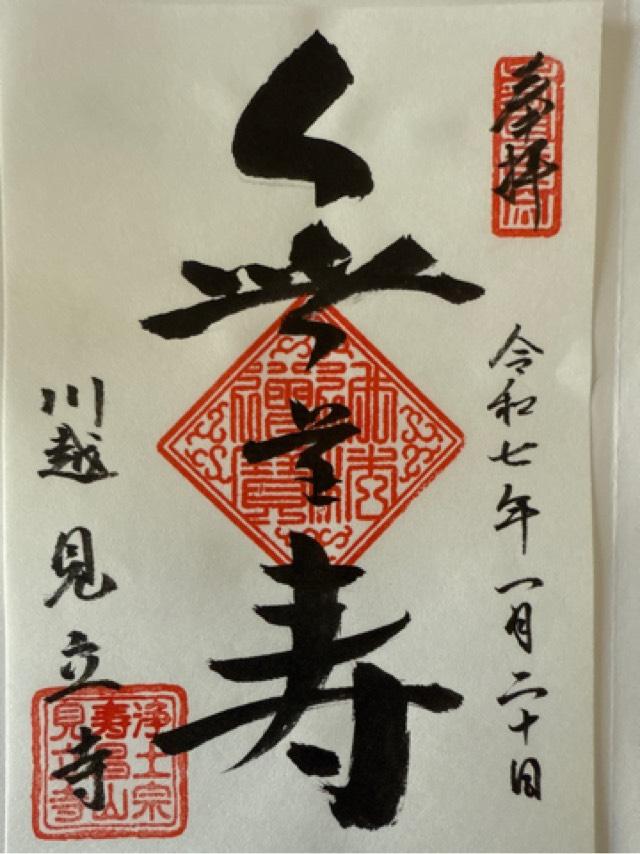 奉拝
令和七年一月二十日
無量寿
佛法
僧寶
川越 見立寺
浄土宗
寿昌山
見立寺